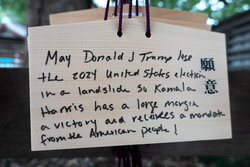 May Donald J Trump lose
the 2024 United States election
in a landslide so Kamala
Harris has a large margin
a victory and receives a mandate
from the American people!
願意